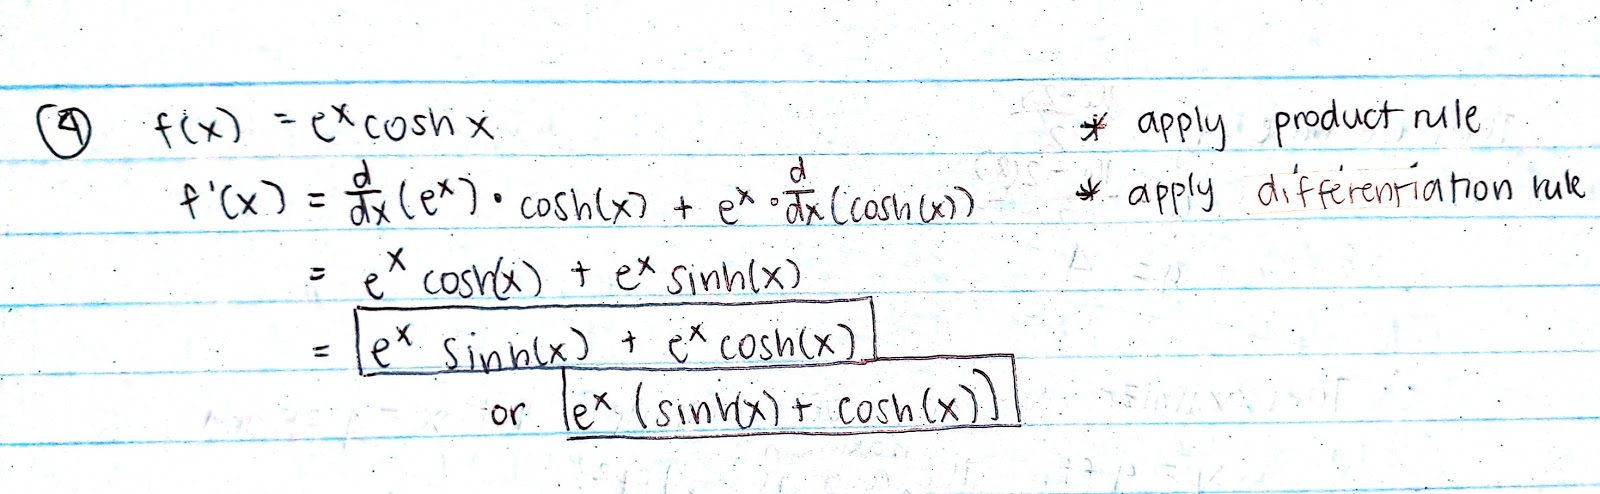 ④ f(x) = e^x cosh x * apply product rule
f'(x) = d/dx (e^x) · cosh(x) + e^x · d/dx (cosh(x)) * apply differentiation rule
= e^x cosh(x) + e^x sinh(x)
= e^x sinh(x) + e^x cosh(x)
or e^x (sinh(x) + cosh(x))